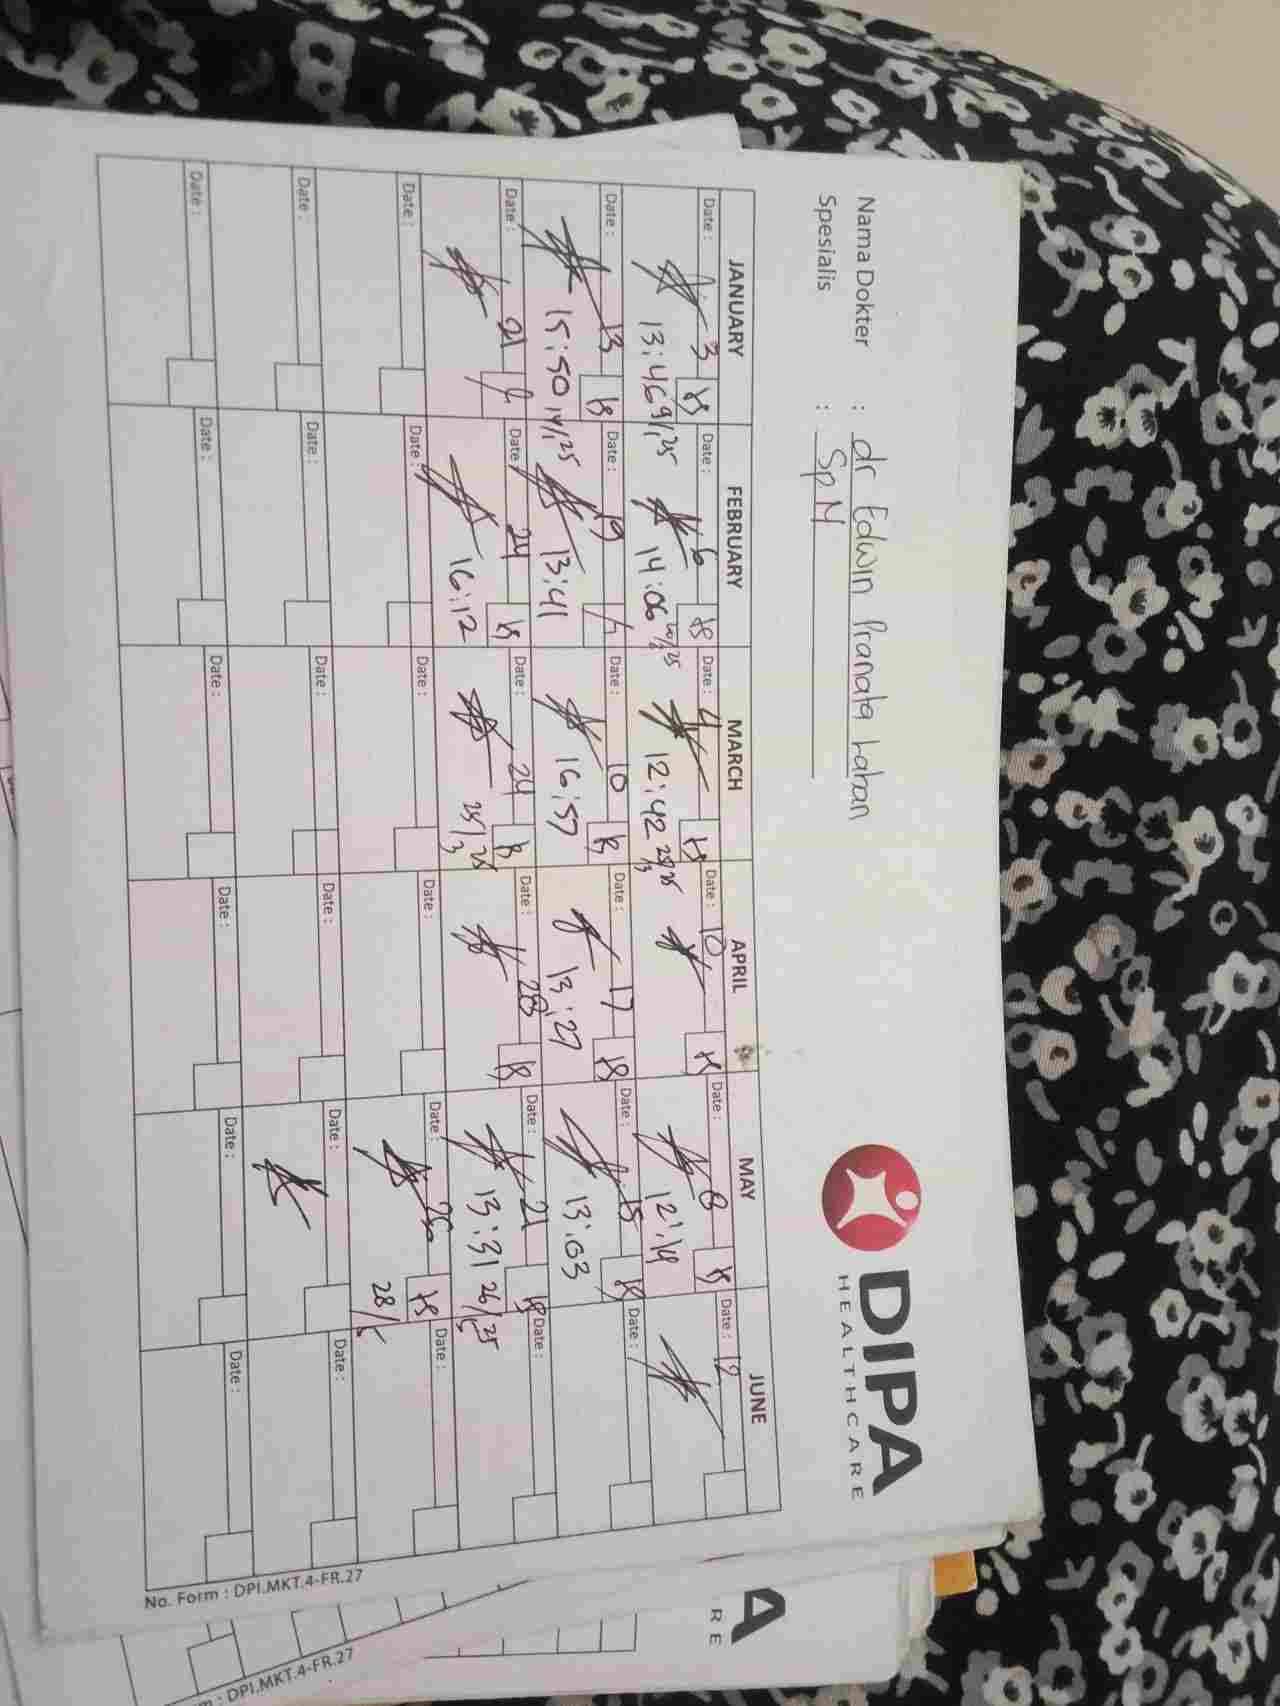 DIPA
HEALTHCARE
Nama Dokter : dr Edwin Pranata
Spesialis : SpM
JANUARY FEBRUARY MARCH APRIL MAY JUNE
Date : 3 Date : 6 Date : 4 Date : 10 Date : 8 Date : 12
13:46 14:06 12:42 12:19
Date : 13 Date : 19 Date : 10 Date : 17 Date : 15 Date :
15:50 13:41 16:57 13:27 13:03
Date : 21 Date : 24 Date : 24 Date : 28 Date : 21 Date :
16:12 25/3 25 13:31 26/5 25
Date : Date : Date : Date : Date : 26 Date :
28/5
Date : Date : Date : Date : Date : Date :
Date : Date : Date : Date : Date : Date :
No. Form : DPI.MKT.4-FR.27
A
RE
: DPI.MKT.4-FR.27